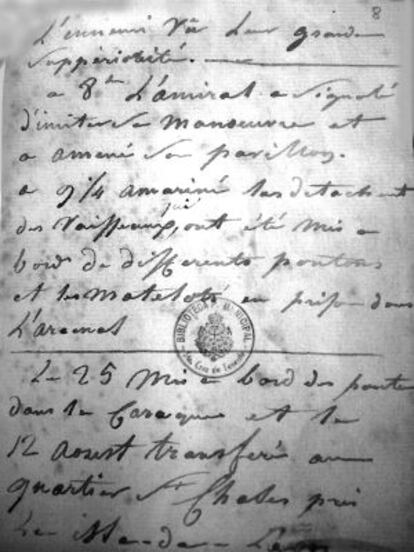 8
L'ennemi Vu Leur grande
Suppériorité.
a 8h L'amiral a Signalé
d'imiter Sa Manoeuvre et
a amené Son pavillon.
a 9 1/4 amariné les détachent
des Vaisseaux, qui ont été Mis a
bord de differents pontons
et les Matelots en prison dans
L'arcenal
BIBLIOTECA MUNICIPAL
Sta. Cruz de Tenerife
Le 25 Mis a bord des ponton
dans la Caraque et le
12 aoust transferé au
quartier St Charles près